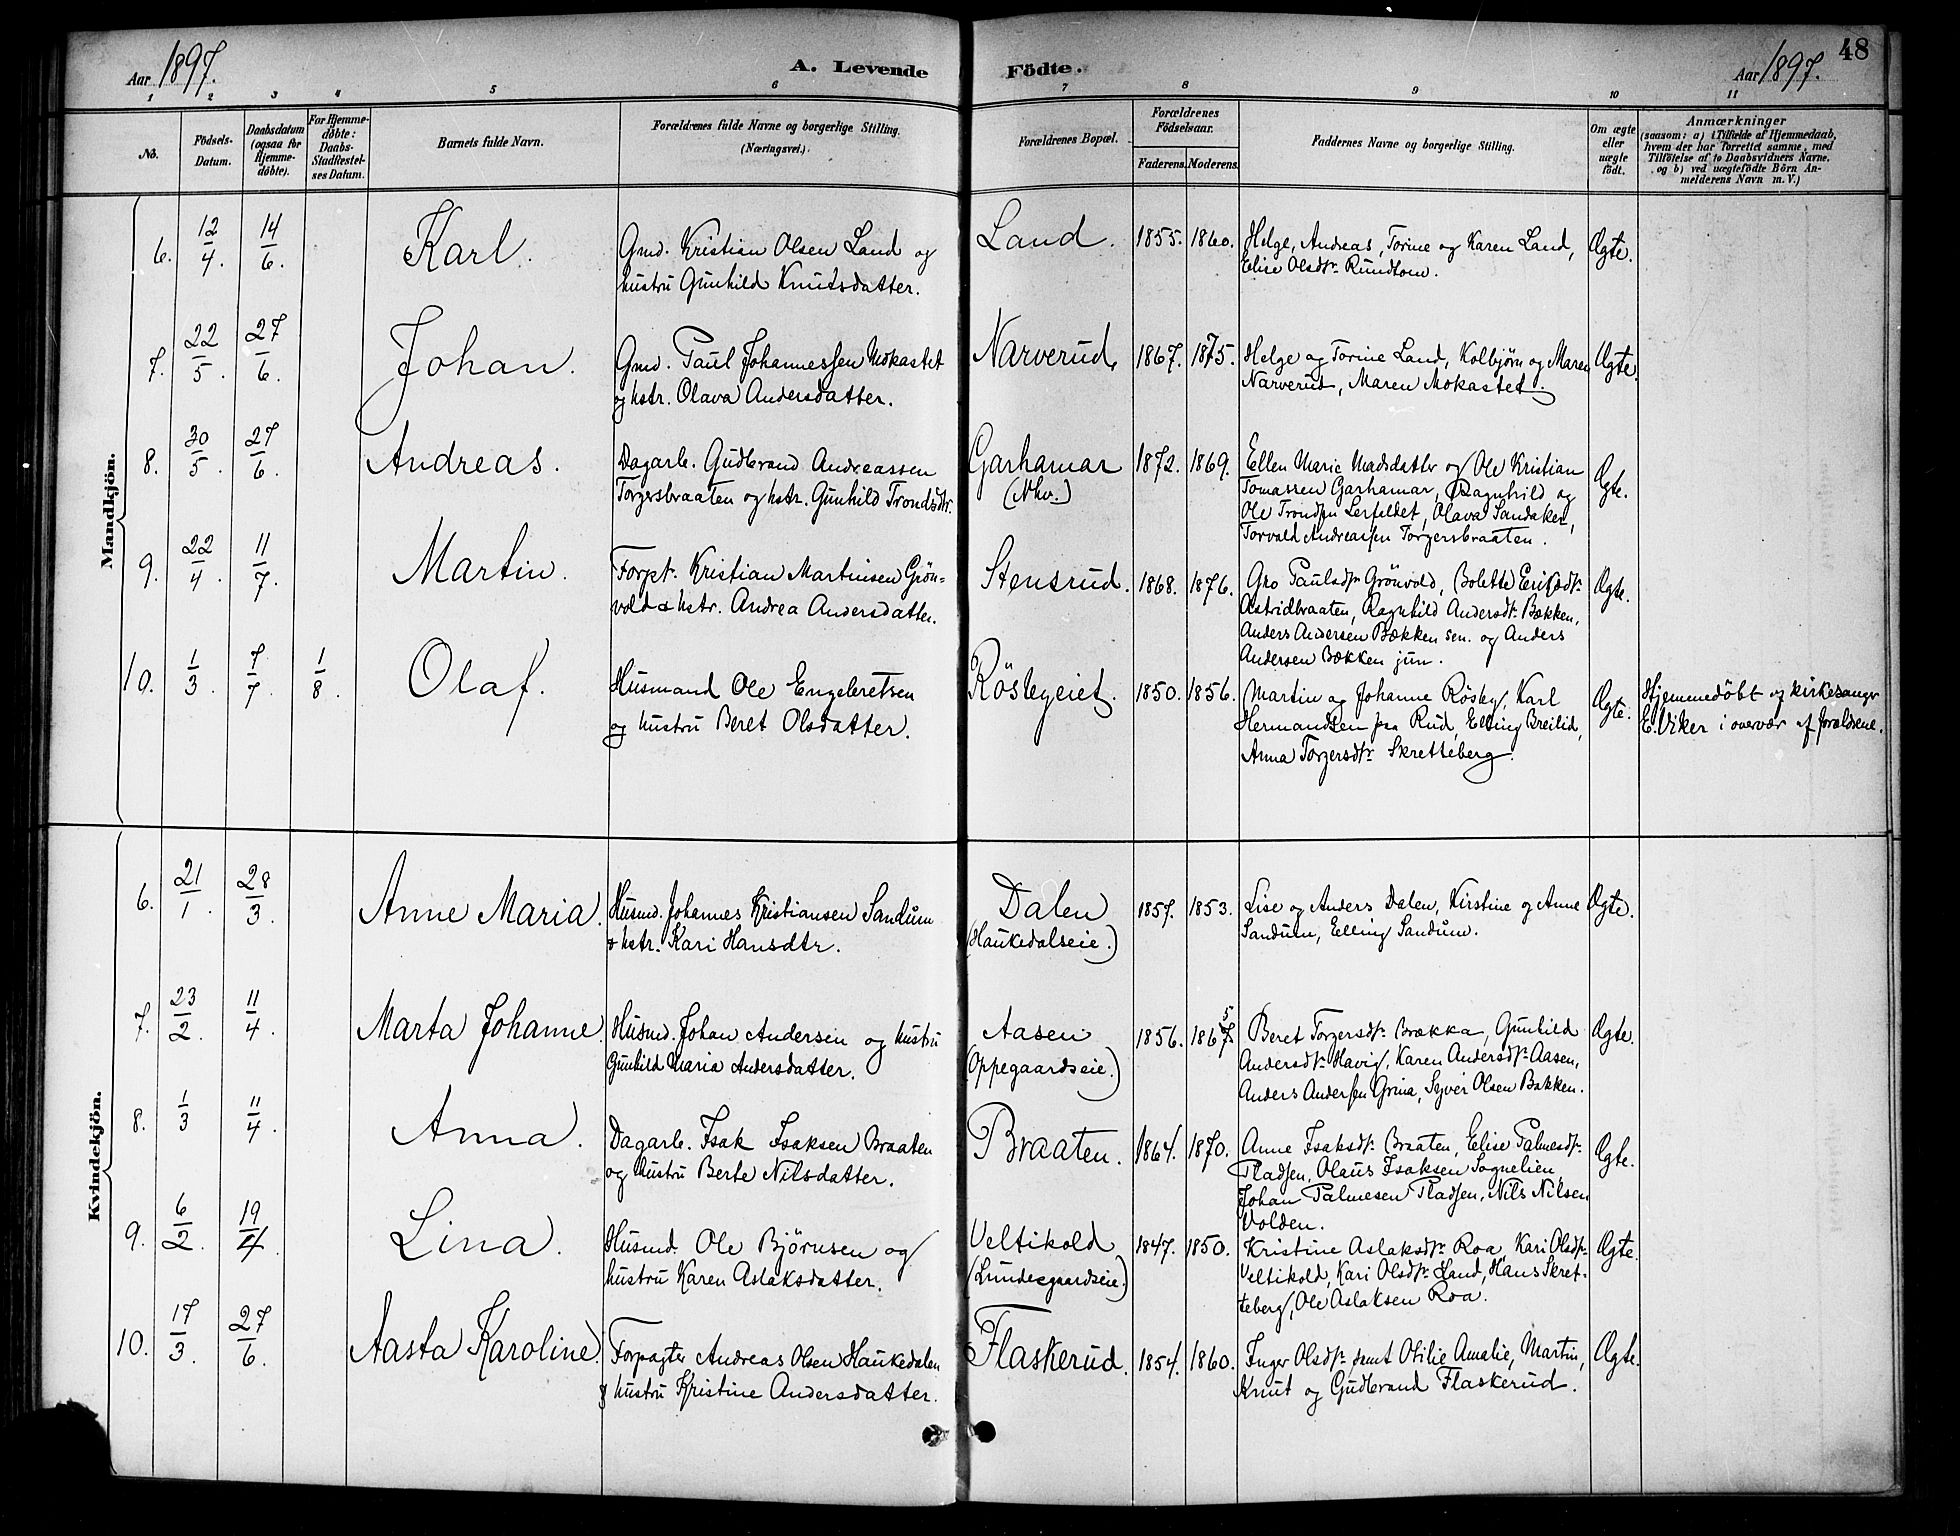 Aar 1897.
A. Levende
Födte.
Aar 1897.
48
1 2 3 4 5 6 7 8 9 10 11
No.
Födsels-
Datum.
Daabsdatum
(ogsaa for
Hjemme-
døbte).
For Hjemme-
døbte:
Daabs-
Stadfæstel-
ses Datum.
Barnets fulde Navn.
Forældrenes fulde Navne og borgerlige Stilling.
(Næringsvei.)
Forældrenes Bopæl.
Forældrenes
Födselsaar.
Faderens. Moderens.
Faddernes Navne og borgerlige Stilling.
Om ægte
eller
uægte
födt.
Anmærkninger
(saasom: a) i Tilfælde af Hjemmedaab,
hvem der har forrettet samme, med
Tilföielse af to Daabsvidners Navne,
og b) ved uægtefödte Börn An-
melderens Navn m. V.)
Mandkjön.
6. 12/4. 14/6. Karl. Gmd. Kristian Olsen Land og
hustru Gunhild Knutsdatter.
Land. 1855. 1860. Helge, Andreas, Torine og Karen Land,
Elise Olsdtr Rundtom. Ægte.
7. 22/5. 27/6. Johan. Gmd. Paul Johannessen Mokastet
og hstr. Olava Andersdatter.
Narverud. 1867. 1875. Helge og Torine Land, Kolbjørn og Maren
Narverud, Maren Mokastet. Ægte.
8. 30/5. 27/6. Andreas. Dagarb. Gudbrand Andreassen
Torgersbraaten og hstr. Gunhild Trondsdtr.
Garhamar
(Nhv.) 1872. 1869. Ellen Marie Madsdatter og Ole Kristian
Tomassen Garhamar, Ragnhild og
Ole Trondsen Lerfeldet, Olava Sandaker,
Torvald Andreassen Torgersbraaten. Ægte.
9. 22/4. 11/7. Martin. Forpt. Kristian Martinsen Grön-
vold & hstr. Andrea Andersdatter.
Stensrud. 1868. 1876. Gro Paulsdtr Grönvold, Bolette Eriksdtr
Astridbraaten, Ragnhild Andersdtr Bækken,
Anders Andersen Bækken sen. og Anders
Andersen Bækken jun. Ægte.
10. 1/3. 7/7. 1/8. Olaf. Husmand Ole Engebretsen
og hustru Beret Olsdatter.
Rösbyeiet. 1850. 1856. Martin og Johanne Rösby, Karl
Hermandsen paa Rud, Elling Breilid,
Anna Torgersdtr Skretteberg. Ægte.
Hjemmedöbt af kirkesanger
E. Viker i overvær af forældrene.
Kvindekjön.
6. 21/1. 28/3. Anne Maria. Husmd. Johannes Kristiansen Sandum
& hstr. Kari Hansdtr.
Dalen
(Haukedalseie.) 1857. 1853. Lise og Anders Dalen, Kirstine og Anne
Sandum, Elling Sandum. Ægte.
7. 23/2. 11/4. Marta Johanne. Husmd. Johan Andersen og hustru
Gunhild Maria Andersdatter.
Aasen
(Oppegaardseie.) 1856. 1865 Beret Torgersdtr Brækka, Gunhild
Andersdtr Havig, Karen Andersdtr Aasen,
Anders Andersen Grina, Syver Olsen Bakken. Ægte.
8. 1/3 11/4. Anna. Dagarb. Isak Isaksen Braaten
og hustru Berte Nilsdatter.
Braaten. 1864. 1870. Anne Isaksdtr Braaten, Elise Palmesdtr
Pladsen, Olaus Isaksen Sognelien,
Johan Palmesen Pladsen, Nils Nilsen
Volden. Ægte.
9. 6/2. 19/4 Lina. Husmd. Ole Björnsen og
hustru Karen Aslaksdatter.
Veltikold
(Lundesgaardseie.) 1847. 1850. Kristine Aslaksdtr Roa, Kari Olsdtr
Veltikold, Kari Olsdtr Land, Hans Skret-
teberg, Ole Aslaksen Roa. Ægte.
10. 17/3. 27/6. Aasta Karoline. Forpagter Andreas Olsen Haukedalen
& hustru Kristine Andersdatter.
Flaskerud. 1854. 1860. Inger Olsdtr samt Otilie Amalie, Martin,
Knut og Gudbrand Flaskerud. Ægte.